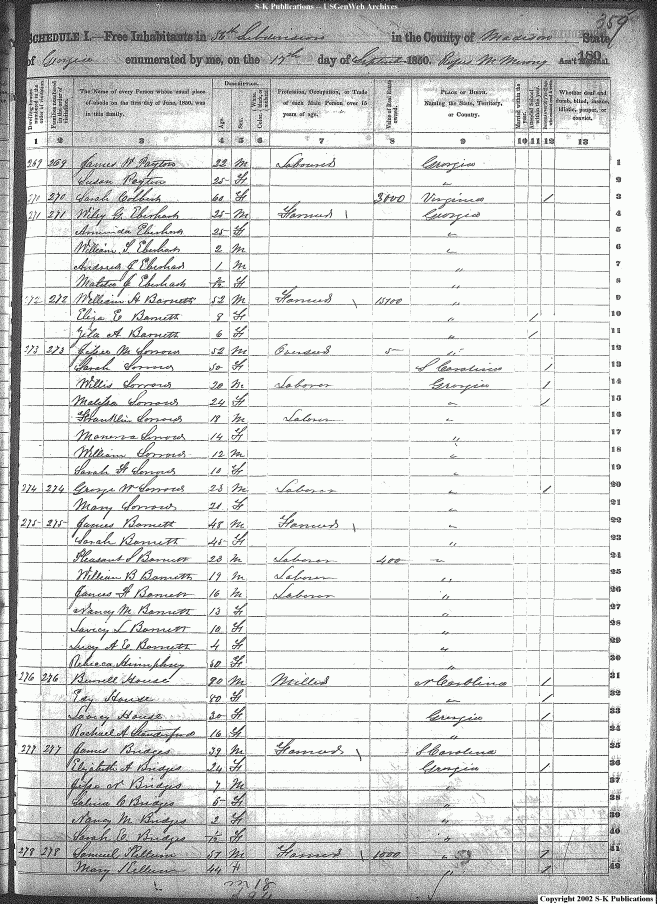 S-K Publications -- USGenWeb Archives
359
SCHEDULE I.—Free Inhabitants in 56th Subdivision in the County of Madison State
of Georgia enumerated by me, on the 17th day of Septemb 1850. Ass't Marshal.
The Name of every Person whose usual place of abode on the first day of June, 1850, was in this family.
Description.
Age.
Sex.
Profession, Occupation, or Trade of each Male Person over 15 years of age.
Value of Real Estate owned.
Place of Birth. Naming the State, Territory, or Country.
Married within the year.
Whether deaf and dumb, blind, insane, idiotic, pauper, or convict.
1 2 3 4 5 6 7 8 9 10 11 12 13
269 269 James W Payton 22 M Labourer Georgia 1
Susan Payton 25 F " 2
270 270 Sarah Colbert 60 F 3000 Virginia / 3
271 271 Wiley G. Eberhart 25 M Farmer \ Georgia 4
Eberhart 25 F " 5
William S. Eberhart 2 M " 6
Andrew J Eberhart 1 M " 7
J Eberhart F " 8
272 272 William H Barnett 52 M Farmer \ 1500 " 9
Eliza E Barnett 8 F " / 10
A Barnett 6 F " / 11
273 273 M Sorrow 52 M Overseer " / 12
Sarah Sorrow 50 F S Carolina / 13
Willis Sorrow 20 M Laborer Georgia / 14
Malissa Sorrow 24 F " / 15
Franklin Sorrow 18 M Laborer " 16
Manerva Sorrow 14 F " 17
William Sorrow 12 M " 18
Sarah F Sorrow 10 F " 19
274 274 George W Sorrow 23 M Laborer " / 20
Mary Sorrow 21 F " 21
275 275 James Barnett 48 M Farmer \ " 22
Sarah Barnett 45 F " 23
Pleasant S Barnett 23 M Laborer 400 " 24
William B Barnett 19 M Laborer " 25
James F Barnett 16 M Laborer " 26
Nancy M Barnett 13 F " 27
L Barnett 10 F " 28
Lucy A E Barnett 4 F " 29
Rebecca Humphrey F " 30
276 276 Burrell House 80 M Miller N Carolina / 31
House 80 F " / 32
House 30 F Georgia / 33
Rachael A 16 F " 34
277 277 James Bridges 39 M Farmer \ S Carolina 35
Elizabeth A Bridges 24 F Georgia / 36
Jesse N Bridges 7 M " 37
C Bridges 5 F " 38
Nancy M Bridges 2 F " 39
Sarah E Bridges F " 40
278 278 Samuel 57 M Farmer \ 1000 " / 41
Mary 44 F " / 42
m 18
Copyright 2002 S-K Publications